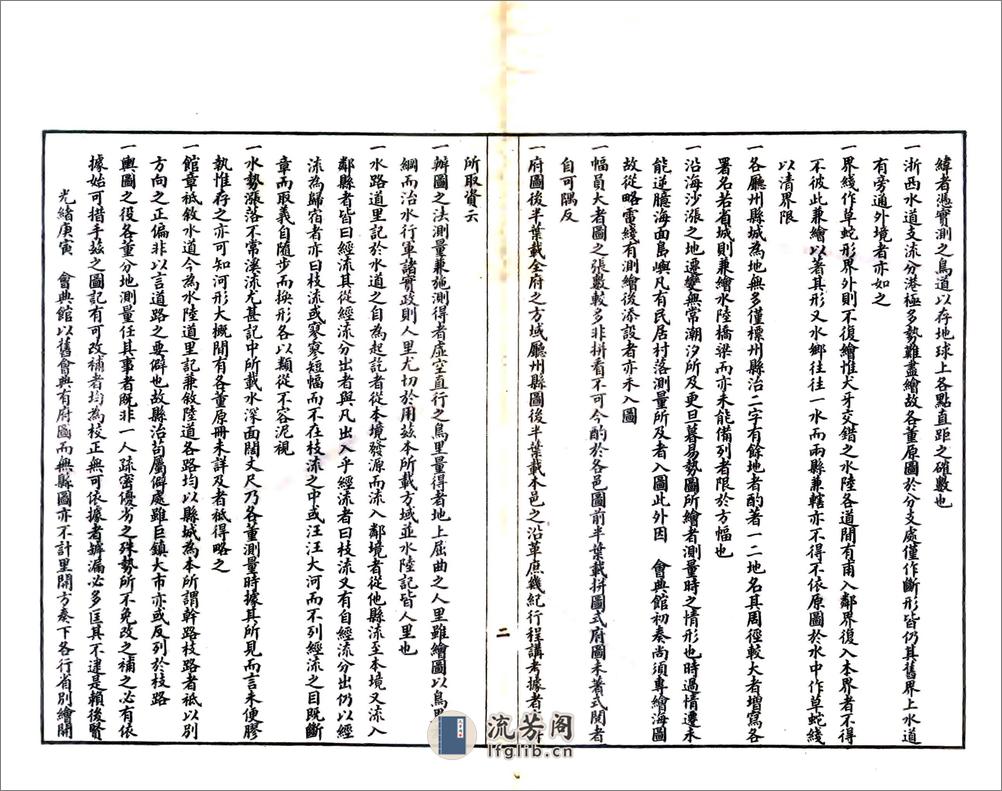 緯者憑實測之鳥道以存地球上各點直距之確數也
一浙西水道支流分港極多勢難盡繪故各董原圖於分支處僅作斷形皆仍其舊界上水道
有旁通外境者亦如之
一界綫作草蛇形界外則不復繪惟犬牙交錯之水陸各道間有甫入鄰界復入本界者不得
不彼此兼繪以著其形又水鄉往往一水而兩縣兼轄亦不得不依原圖於水中作草蛇綫
以清界限
一各廳州縣城為地無多僅標州縣治二字有餘地者酌著一二地名其周徑較大者增寫各
署名若省城則兼繪水陸橋梁而亦未能備列者限於方幅也
一沿海沙漲之地遷變無常潮汐所及更旦暮易勢圖所繪者測量時之情形也時過情遷未
能逆臆海面島嶼凡有民居村落測量所及者入圖此外因 會典館初奏尚須專繪海圖
故從略電綫有測繪後添設者亦未入圖
一幅員大者圖之張數較多非拼看不可今酌於各邑圖前半葉載拼圖式府圖未著式閱者
自可隅反
一府圖後半葉載全府之方域廳州縣圖後半葉載本邑之沿革庶幾紀行程講考據者
所取資云
一辦圖之法測量兼施測得者虛空直行之鳥里量得者地上屈曲之人里雖繪圖以鳥里
綱而治水行軍諸實政則人里尤切於用茲本所載方域並水陸記皆人里也
一水路道里記於水道之自為起訖者從本境發源而流入鄰境者從他縣流至本境又流入
鄰縣者皆曰經流其從經流分出者與凡出入乎經流者曰枝流又有自經流分出仍以經
流為歸宿者亦曰枝流或寥寥短幅而不在枝流之中或汪汪大河而不列經流之目既斷
章而取義自隨步而換形各以類從不容泥視
一水勢漲落不常溪流尤甚記中所載水深面闊丈尺乃各董測量時據其所見而言未便膠
執惟存之亦可知河形大概間有各董原冊未詳及者祗得略之
一館章祗敘水道今為水陸道里記兼敘陸道各路均以縣城為本所謂幹路枝路者祗以別
方向之正偏非以言道路之要僻也故縣治苟屬僻處雖巨鎮大市亦或反列於枝路
一輿圖之役各董分地測量任其事者既非一人疏密優劣之殊勢所不免改之補之必有依
據始可措手茲之圖記有可改補者均為校正無可依據者罅漏必多匡其不逮是賴後賢
光緒庚寅 會典館以舊會典有府圖而無縣圖亦不計里開方奏下各行省別繪開
二
流芳阁
lfglib.cn